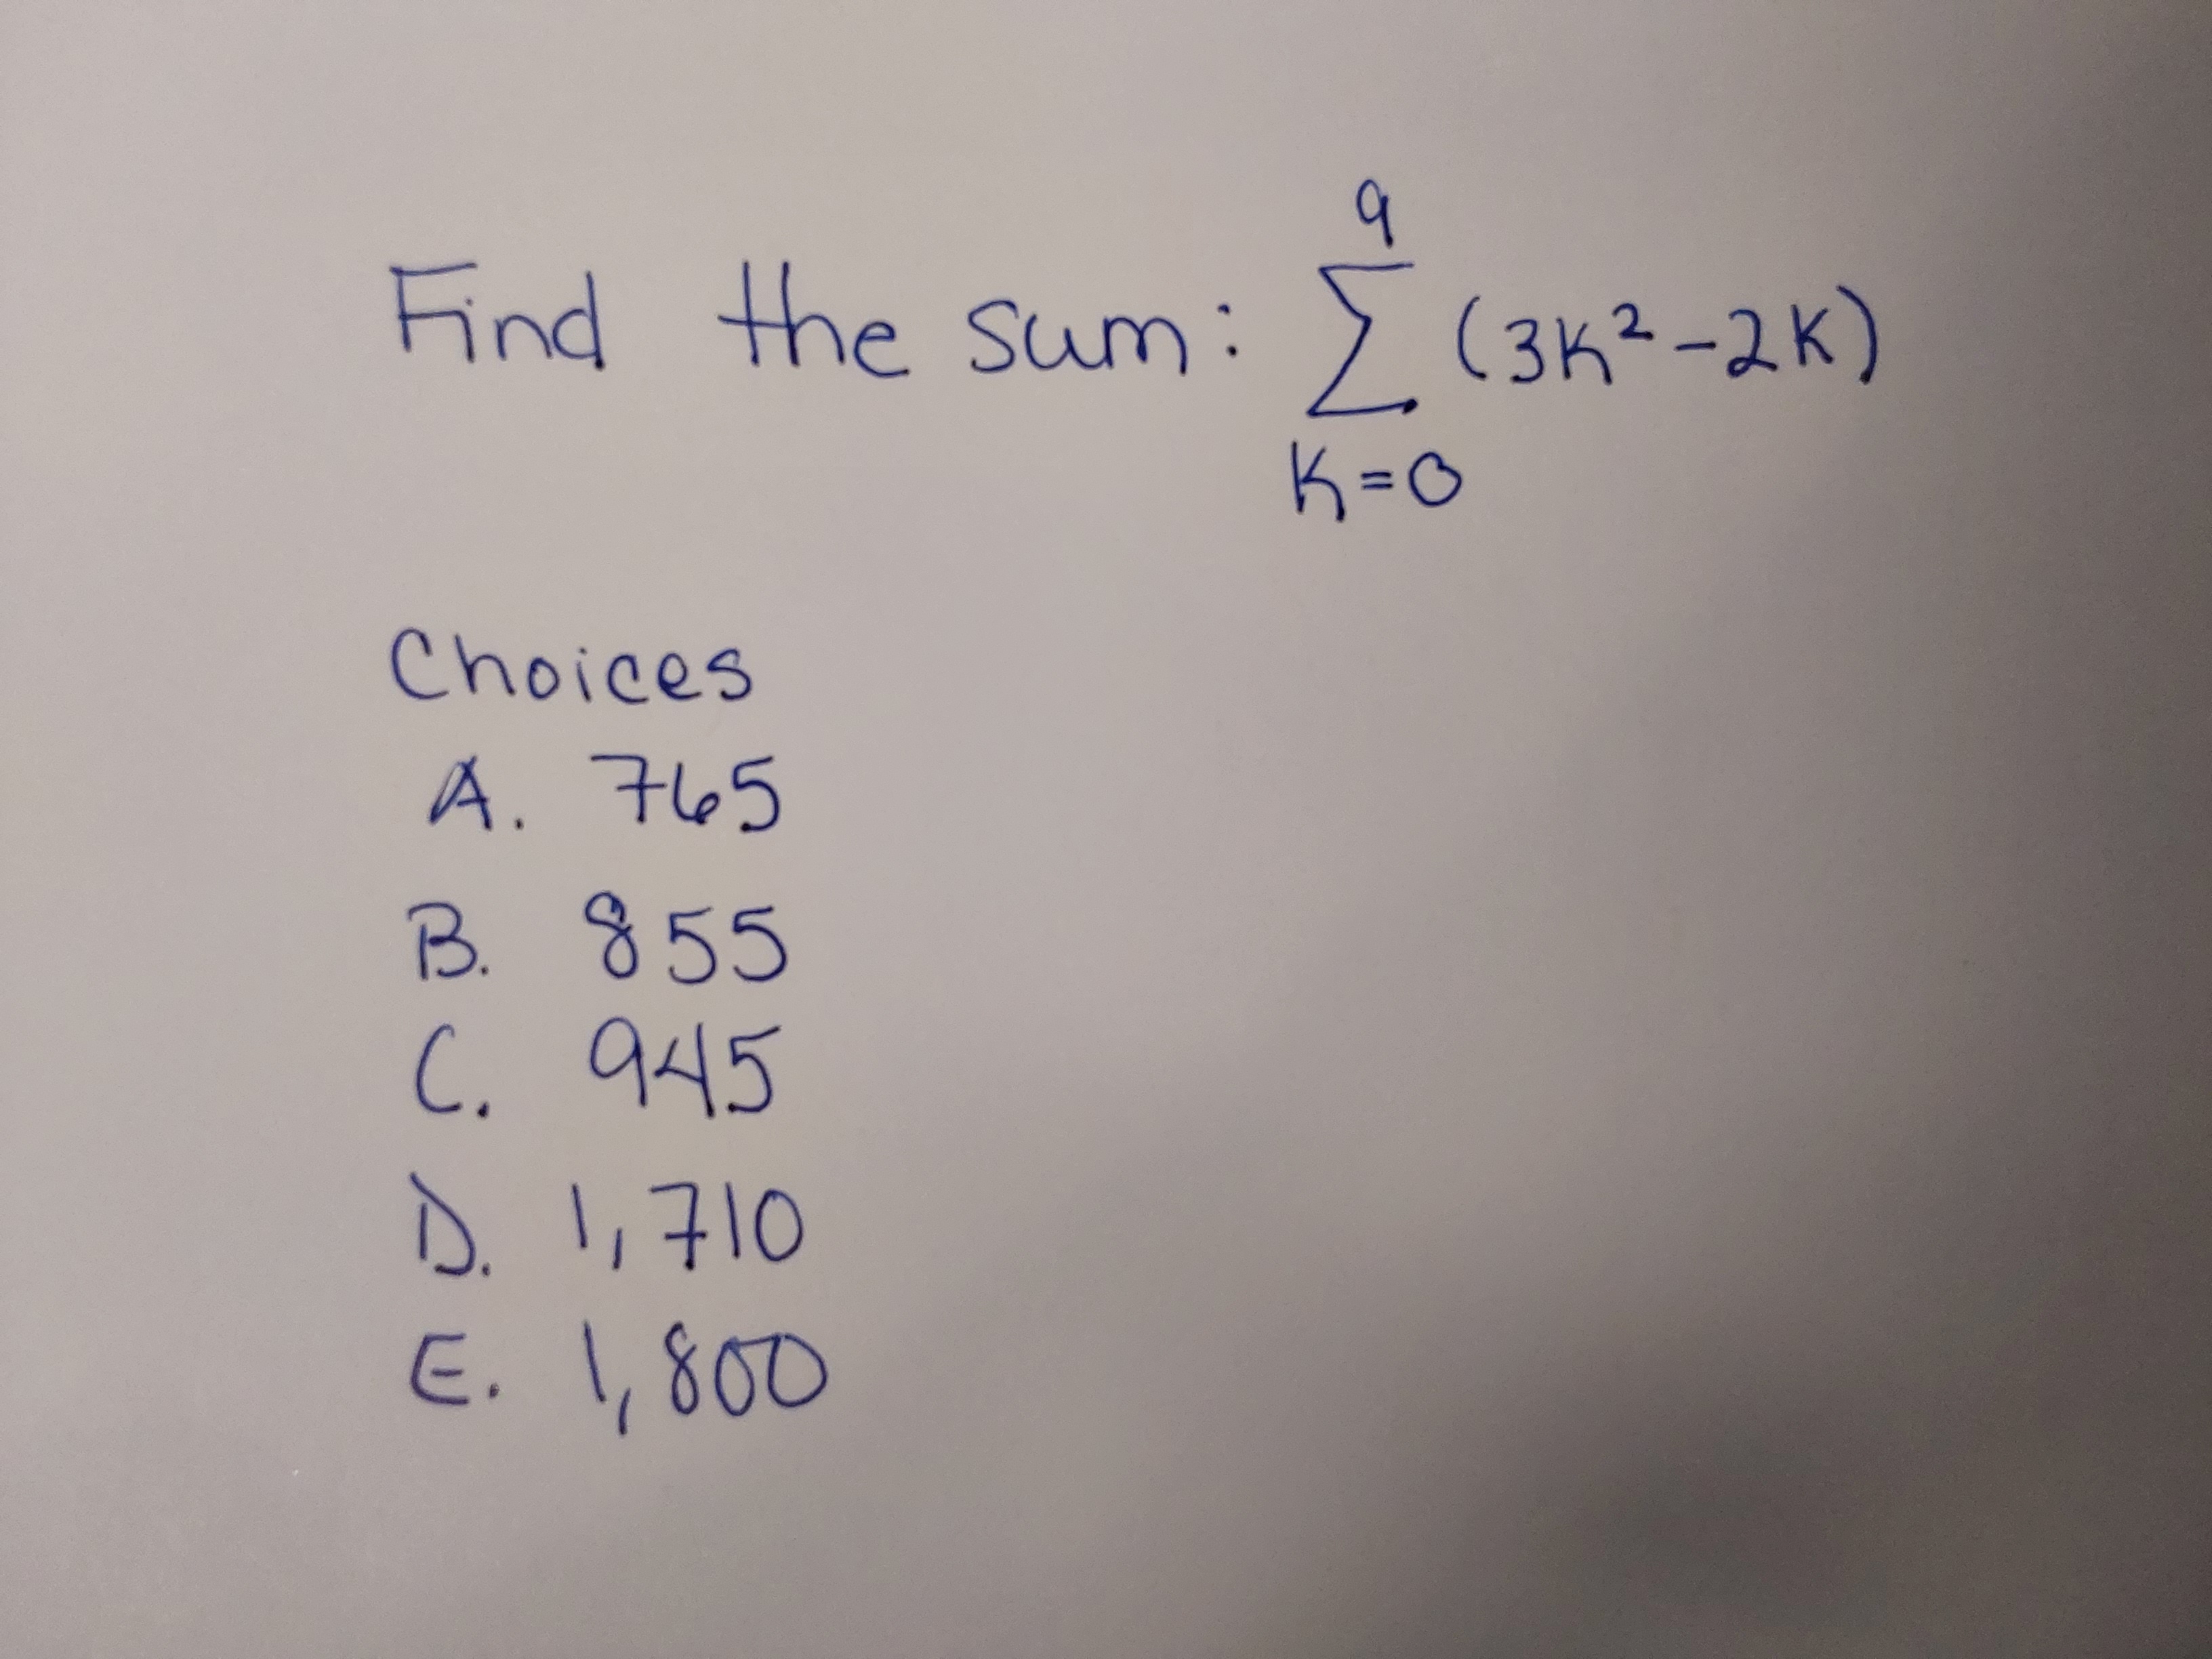 Find the sum: 9∑K=0 (3K²-2K)
Choices
A. 765
B. 855
C. 945
D. 1,710
E. 1,800